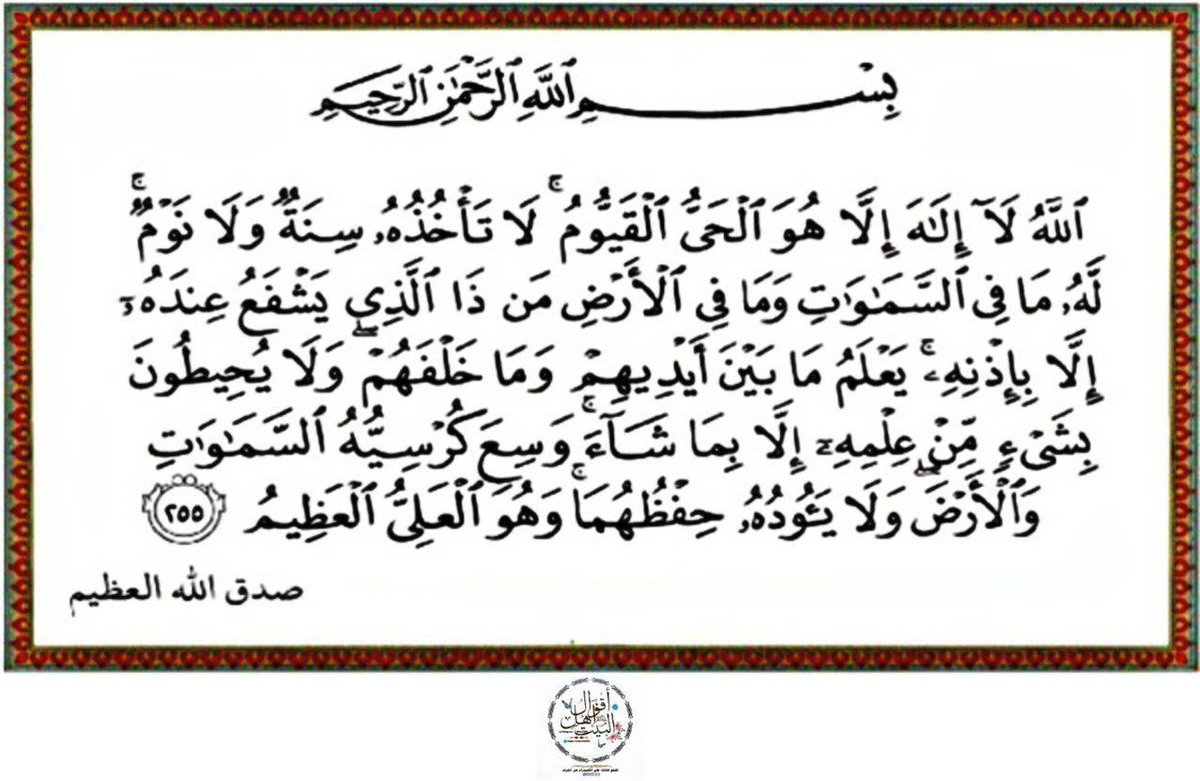 بِسْمِ ٱللَّهِ ٱلرَّحْمَٰنِ ٱلرَّحِيمِ
ٱللَّهُ لَآ إِلَٰهَ إِلَّا هُوَ ٱلْحَىُّ ٱلْقَيُّومُ ۚ لَا تَأْخُذُهُۥ سِنَةٌ وَلَا نَوْمٌ ۚ
لَّهُۥ مَا فِى ٱلسَّمَٰوَٰتِ وَمَا فِى ٱلْأَرْضِ مَن ذَا ٱلَّذِى يَشْفَعُ عِندَهُۥٓ
إِلَّا بِإِذْنِهِۦ ۚ يَعْلَمُ مَا بَيْنَ أَيْدِيهِمْ وَمَا خَلْفَهُمْ ۖ وَلَا يُحِيطُونَ
بِشَىْءٍ مِّنْ عِلْمِهِۦٓ إِلَّا بِمَا شَآءَ ۚ وَسِعَ كُرْسِيُّهُ ٱلسَّمَٰوَٰتِ
وَٱلْأَرْضَ ۖ وَلَا يَـُٔودُهُۥ حِفْظُهُمَا ۚ وَهُوَ ٱلْعَلِىُّ ٱلْعَظِيمُ ٢٥٥
صدق الله العظيم
أقوال
أهل
البيت